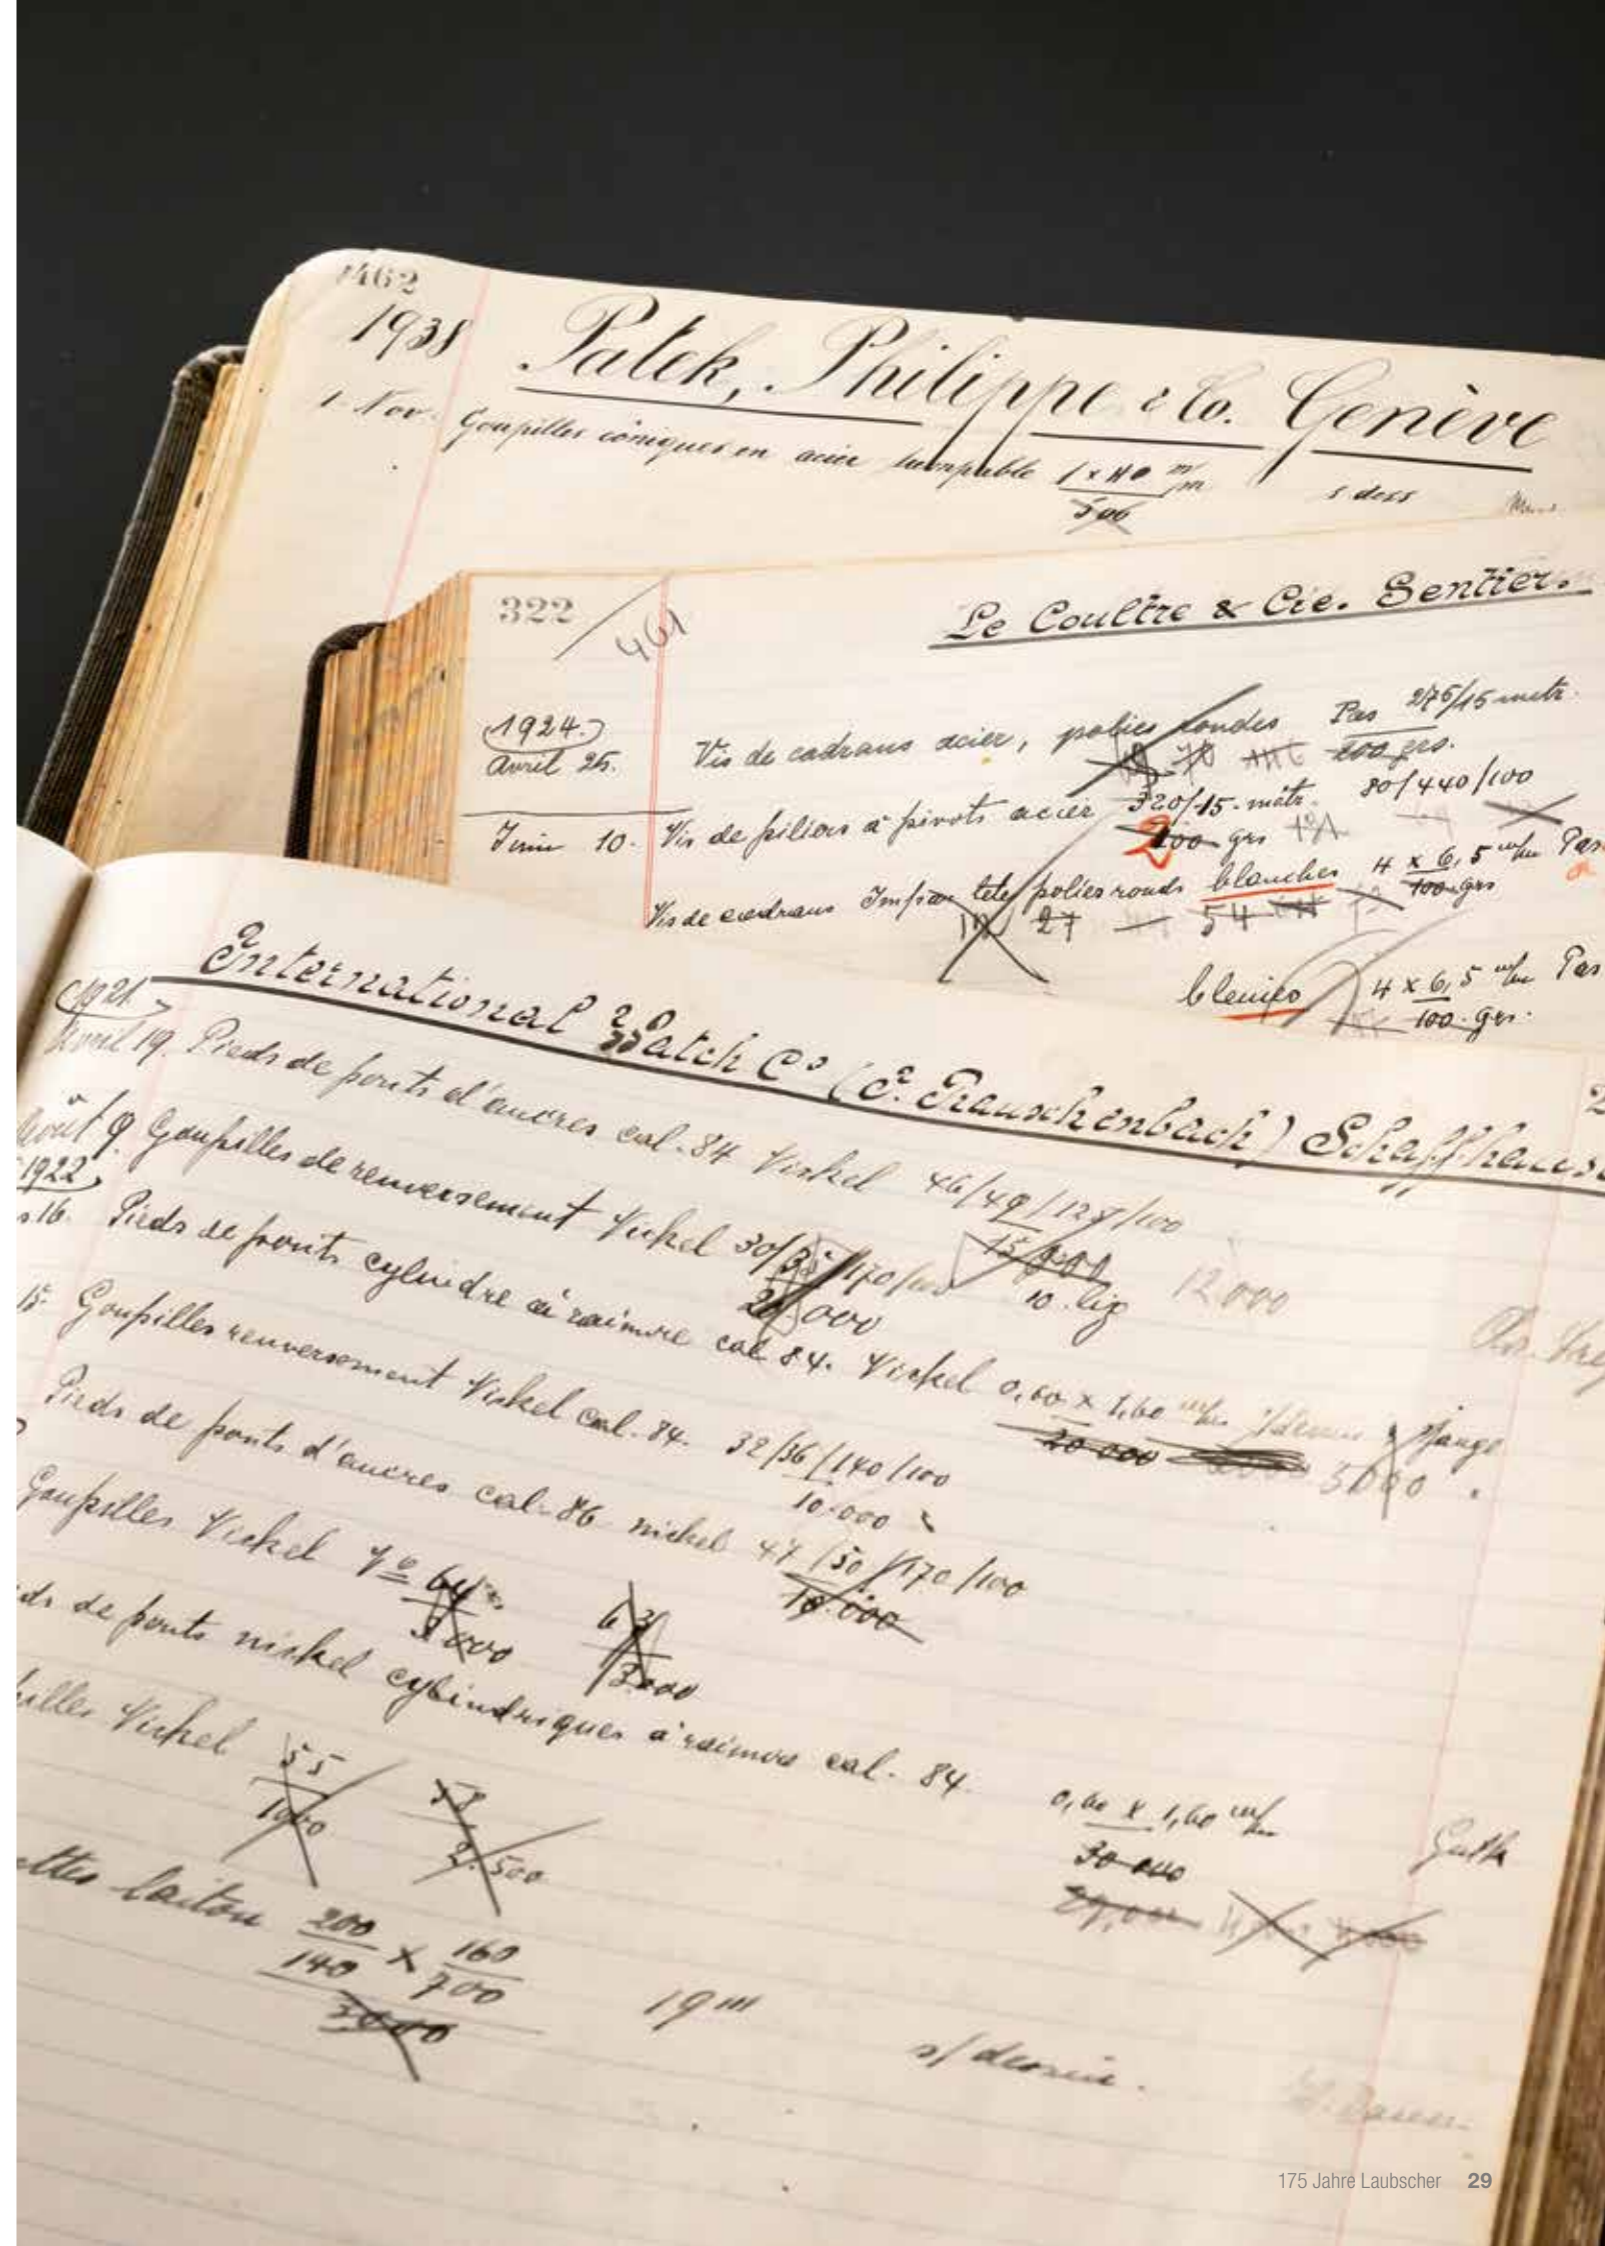 462
1938
Patek, Philippe & Co. Genève
1. Nov. Goupilles côniques en acier trempable 1 x 40 m/m
500
322
461
Le Coultre & Cie. Sentier.
1924.
Avril 25. Vis de cadrans acier, polies rondes Pas 275/15 metr.
100 grs.
Juin 10. Vis de piliers à pivots acier 320/15 métr. 80/440/100
200 grs
Vis de cadrans têtes polies ronds blanches 4 x 6,5 m/m Pas
27 54 100 grs
bleuies 4 x 6,5 m/m Pas
100 grs.
International Watch Co (E. Rauschenbach) Schaffhaus
1921.
Avril 19. Pieds de ponts d'ancres cal. 84 Nickel 46/49/127/100
15 000 12000
10 lig
Août 9. Goupilles de renversement Nickel 30/35/170/100
000
1922
16. Pieds de ponts cylindre à rainure cal 84. Nickel 0,60 x 1,60 m/m s/dessin jauge
20 000 3000
15. Goupilles renversement Nickel cal. 84. 32/36/140/100
10.000
Pieds de ponts d'ancres cal. 86 nickel 47/50/170/100
10.000
Goupilles Nickel No 64 63
3000 3000
ds de ponts nickel cylindriques à rainure cal. 84. 0,60 x 1,60 m/m
30 000
illes Nickel 55 58
1000 2.500
ttes laiton 200 x 160
140 700 19'''
3000
s/dessin.
175 Jahre Laubscher 29